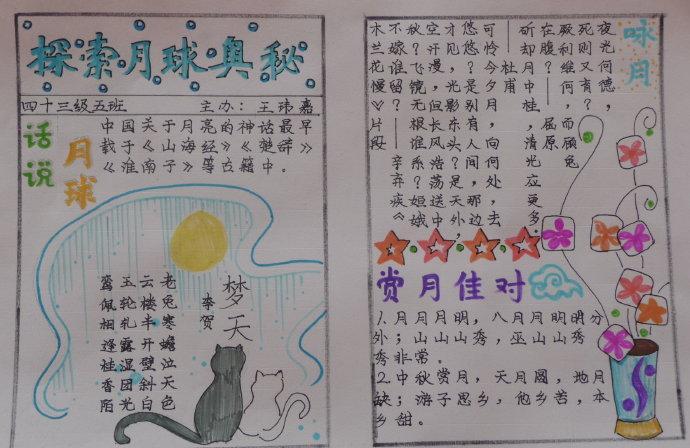 探索月球奥秘
四十三级五班 主办：王玮嘉
话说
月球
中国关于月亮的神话最早
载于《山海经》《楚辞》
《淮南子》等古籍中。
梦天
李贺
老兔寒蟾泣天色
云楼半开壁斜白
玉轮轧露湿团光
鸾佩相逢桂香陌
咏月
夜光何德，
死则又有？
厥利维何，而顾兔
在腹？——屈原
斫却月中桂，清光应更多。
——杜甫
可怜今夕月，向何处去，
悠悠？是别有人间，那边
才见，光影东头，是天外
空汗漫，间长风浩荡送中
秋？飞镜无根谁系？姮娥
不嫁谁留？——辛弃疾《
木兰花慢》片段
赏月佳对
1.月月月明，八月月明明分
外；山山山秀，巫山山秀
秀非常。
2.中秋赏月，天月圆，地月
缺；游子思乡，他乡苦，本
乡甜。